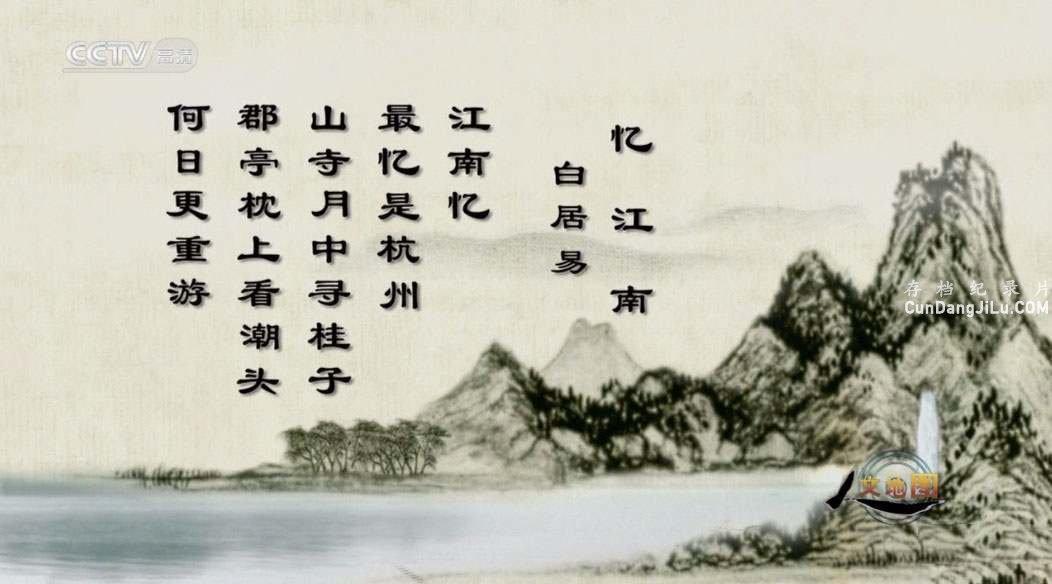 CCTV高清
忆江南
白居易
江南忆
最忆是杭州
山寺月中寻桂子
郡亭枕上看潮头
何日更重游
存档纪录片
CunDangJiLu.COM
人文地图